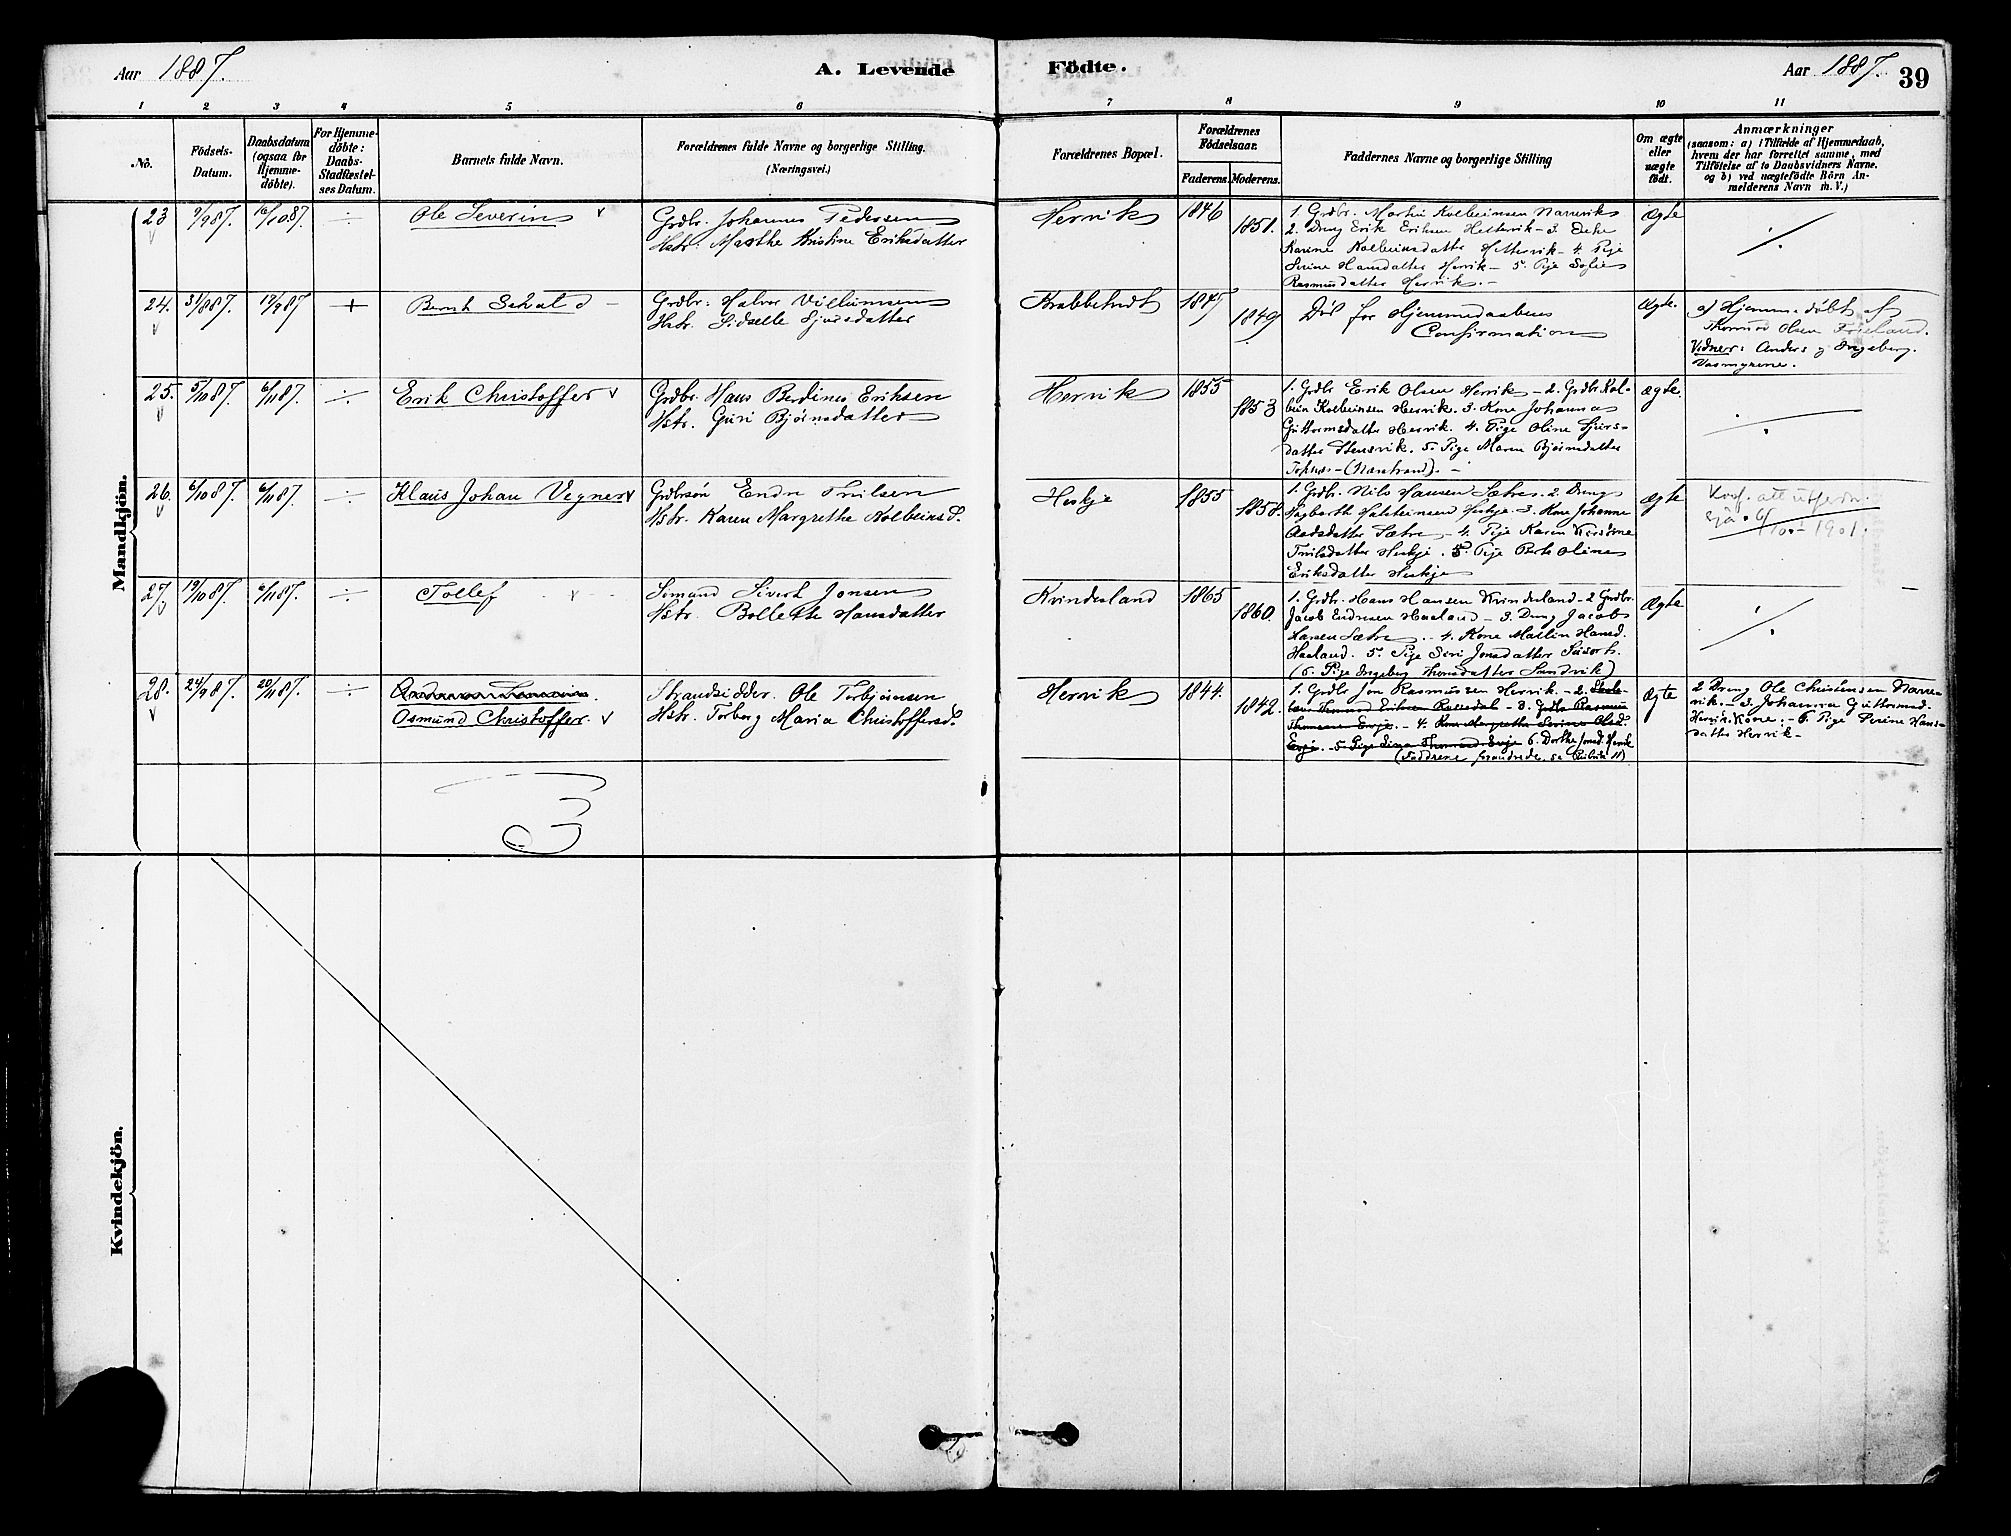 Aar 1887. A. Levende Födte. Aar 1887. 39
1 2 3 4 5 6 7 8 9 10 11
No.
Födsels-
Datum.
Daabsdatum
(ogsaa for
Hjemme-
döbte).
For Hjemme-
döbte:
Daabs-
Stadfæstel-
ses Datum.
Barnets fulde Navn.
Forældrenes fulde Navne og borgerlige Stilling.
(Næringsvei.)
Forældrenes Bopæl.
Forældrenes
Födselsaar.
Faderens. Moderens.
Faddernes Navne og borgerlige Stilling
Om ægte
eller
uægte
födt.
Anmærkninger
(saasom: a) i Tilfælde af Hjemmedaab,
hvem der har forrettet samme, med
Tilföielse af to Daabsvidners Navne.
og b) ved uægtefödte Börn An-
melderens Navn m. V.)
Mandkjön.
23 9/987. 16/1087. ÷ Ole Severin
Grdbr. Johannes Pedersen
Hstr. Marthe Kristine Eriksdatter
Hervik 1846 1851.
1. Grdbr. Martin Kolbeinsen Narrevik
2. Dreng Erik Eriksen Hettervik - 3. Enke
Karine Kolbeinsdatter Hettervik - 4. Pige
Serine Hansdatter Hervik - 5. Pige Sofie
Rasmusdatter Hervik. -
Ægte
24. 31/887. 19/987 + Bernt Sekald
Grdbr: Halvor Villumsen
Hstr. Sidselle Sjursdatter
Krabbetvedt 1847 1849
Död før Hjemmedaabens
Confirmation
Ægte.
a) Hjemmedöbt af
Thormod Olsen Frieland.
Vidner: Anders og Ingeberg
25. 5/1087. 6/1187. ÷ Erik Christoffer
Grdbr. Hans Berdines Eriksen
Hstr. Guri Bjørnsdatter
Hervik 1855 1853
1. Grdbr Erik Olsen Hervik - 2. Grdbr. Kol-
bein Kolbeinsen Hervik. 3. Kone Johanna
Guttormsdatter Hervik. 4. Pige Oline Sjurs-
datter Stensvik. 5. Pige Maren Bjørnsdatter
Topnæs - (Nærstrand). -
Ægte.
26. 6/1087. 6/1187. ÷ Klaus Johan Vegner
Grdbrsön Endre Truilsen
Hstr. Karen Margrethe Kolbeinsd.
Heskje 1855 1858.
1. Grdbr. Nils Hansen Sætre. 2. Dreng
Hagbarth Halsteinsen Heskje - 3. Kone Johanne
Aadsdatter Sætre - 4. Pige Karen
Truilsdatter Heskje. 5. Pige Berte Oline
Eriksdatter Heskje
Ægte
Konf. att utferd.
1901.
27 19/1087. 6/1187. ÷ Tollef
Simund Sivert Jonsen
Hstr. Bollette Hansdatter
Kvindesland 1865 1860.
1. Grdbr. Hans Hansen Kvindesland - 2 Grdbr.
Jacob Endresen Haaland - 3. Dreng Jacob
Hansen Sætre - 4. Kone Mallin Hansd.
Haaland. 5. Pige Siri Jonsdatter
(6. Pige Ingeborg Thorsdatter Sundvik)
Ægte
28. 24/987. 20/1187. ÷
Osmund Christoffer.
Strandsidder. Ole Torbjørnsen
Hstr. Torborg Maria Christoffersd.
Hervik 1844. 1842.
1. Grdbr Jon Rasmussen Hervik. - 2. Skole-
lærer Thomas Eriksen - 3. Grdbr Rasmus
Thomasen Evje. - 4. Kone Margrethe Serine Olsd.
Evje. - 5. Pige Sina Thomasd. Evje 6. Dorthe Jonsd. Hervik
(Faddrene forandrede, se Rubrik 11)
Ægte
2 Dreng Ole Christensen Narre-
vik. - 3. Johanna Guttormsd.
Hervik. Kone. - 6. Pige Serine Hans-
datter Hervik -
Kvindekjön.